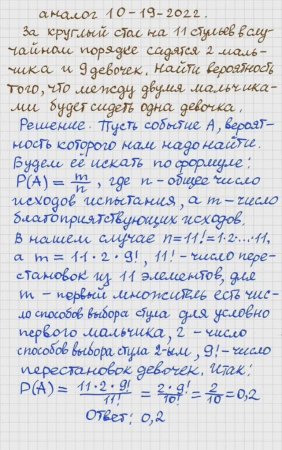 аналог 10-19-2022.
За круглый стол на 11 стульев в слу-
чайном порядке садятся 2 маль-
чика и 9 девочек. Найти вероятность
того, что между двумя мальчика-
ми будет сидеть одна девочка.
Решение. Пусть событие А, вероят-
ность которого нам надо найти.
Будем её искать по формуле:
P(A) = m/n, где n - общее число
исходов испытания, а m - число
благоприятствующих исходов.
В нашем случае n=11!=1·2·...·11,
а m = 11·2·9!, 11! - число пере-
становок из 11 элементов, для
m - первый множитель есть чис-
ло способов выбора стула для условно
первого мальчика, 2 - число
способов выбора стула 2-ым, 9! - число
перестановок девочек. Итак:
P(A) = 11·2·9!/11! = 2·9!/10! = 2/10 = 0,2
Ответ: 0,2